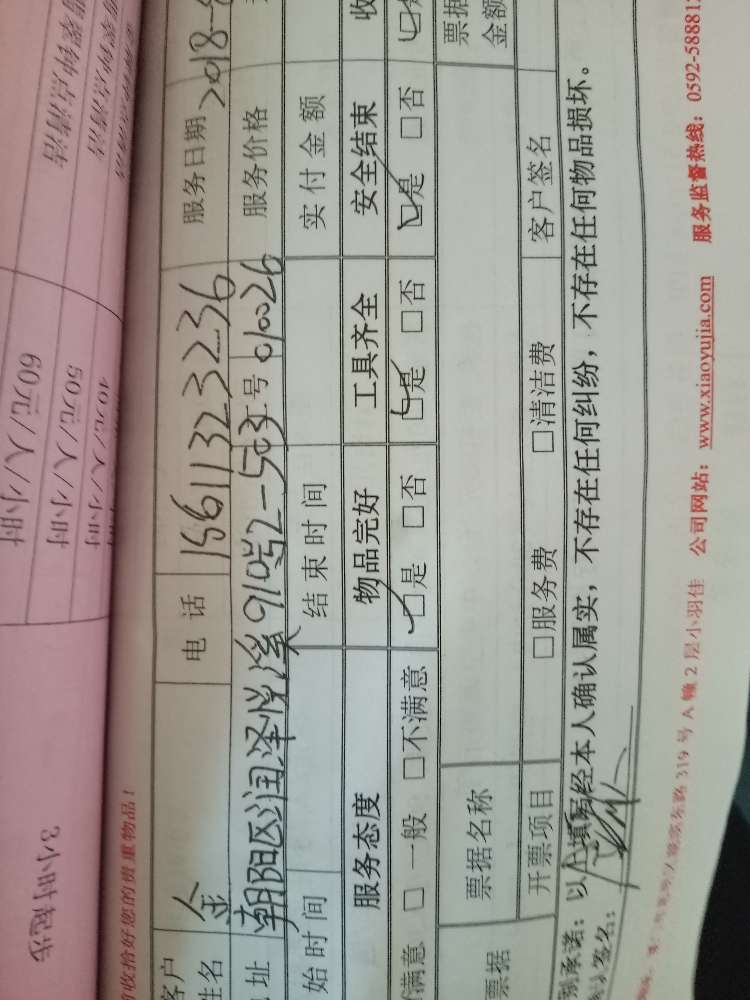 收拾好您的贵重物品！
客户姓名 金 电话 15611323236 服务日期 2018-
地址 朝阳区润泽悦溪910号2-503 工号 010026 服务价格
始时间 结束时间 实付金额
服务态度 物品完好 工具齐全 安全结束 收
满意 □一般 □不满意 ☑是 □否 ☑是 □否 ☑是 □否
票据 票据名称 票据金额
开票项目 □服务费 □清洁费 客户签名
承诺：以上填写经本人确认属实，不存在任何纠纷，不存在任何物品损坏。
签名：
319号A幢2层小羽佳 公司网站：www.xiaoyujia.com 服务监督热线：0592-588812
3小时起步
60元/人/小时
50元/人/小时
40元/人/小时